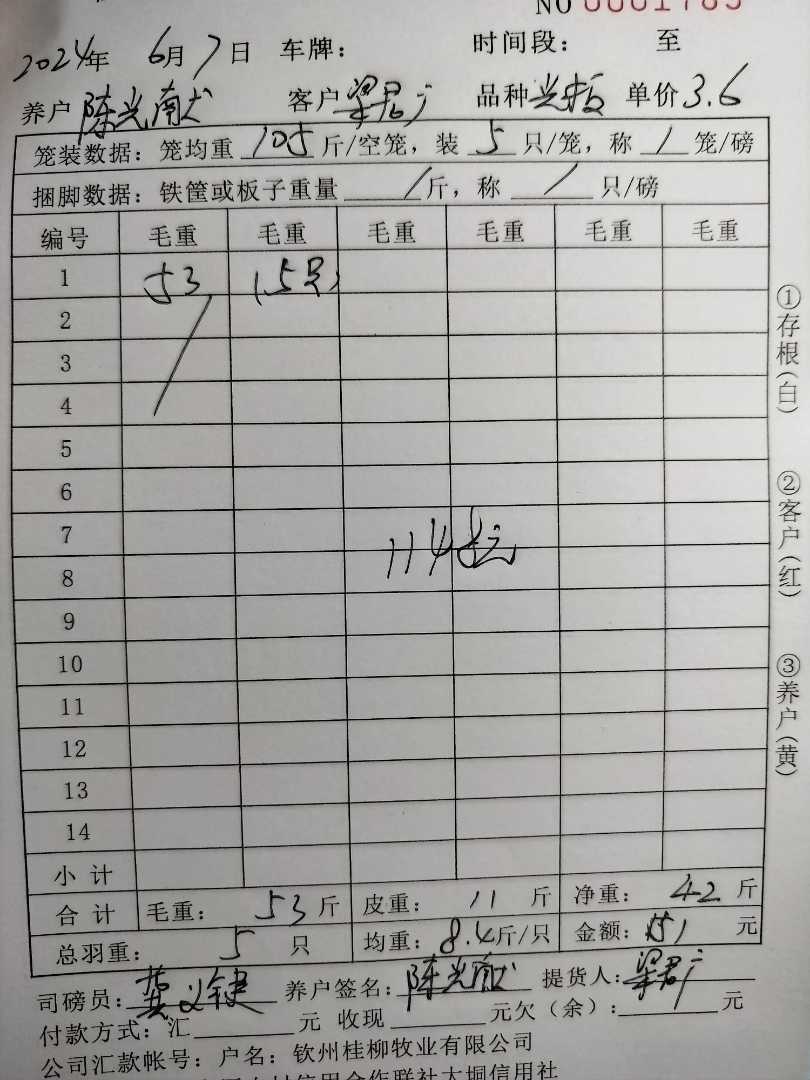 NO 0001785
2024年 6月7日 车牌： 时间段： 至
养户 陈光献 客户 梁君广 品种 单价 3.6
笼装数据：笼均重 105 斤/空笼，装 5 只/笼，称 1 笼/磅
捆脚数据：铁筐或板子重量 / 斤，称 / 只/磅
编号 毛重 毛重 毛重 毛重 毛重 毛重
1 53 (5只)
2
3
4
5
6
7
114
8
9
10
11
12
13
14
小计
合计 毛重： 53 斤 皮重： 11 斤 净重： 42 斤
总羽重： 5 只 均重：8.4斤/只 金额：151 元
司磅员： 养户签名：陈光献 提货人：梁君广
付款方式：汇 元 收现 元欠（余）： 元
公司汇款帐号：户名：钦州桂柳牧业有限公司
信用合作联社大垌信用社
①存根（白）
②客户（红）
③养户（黄）